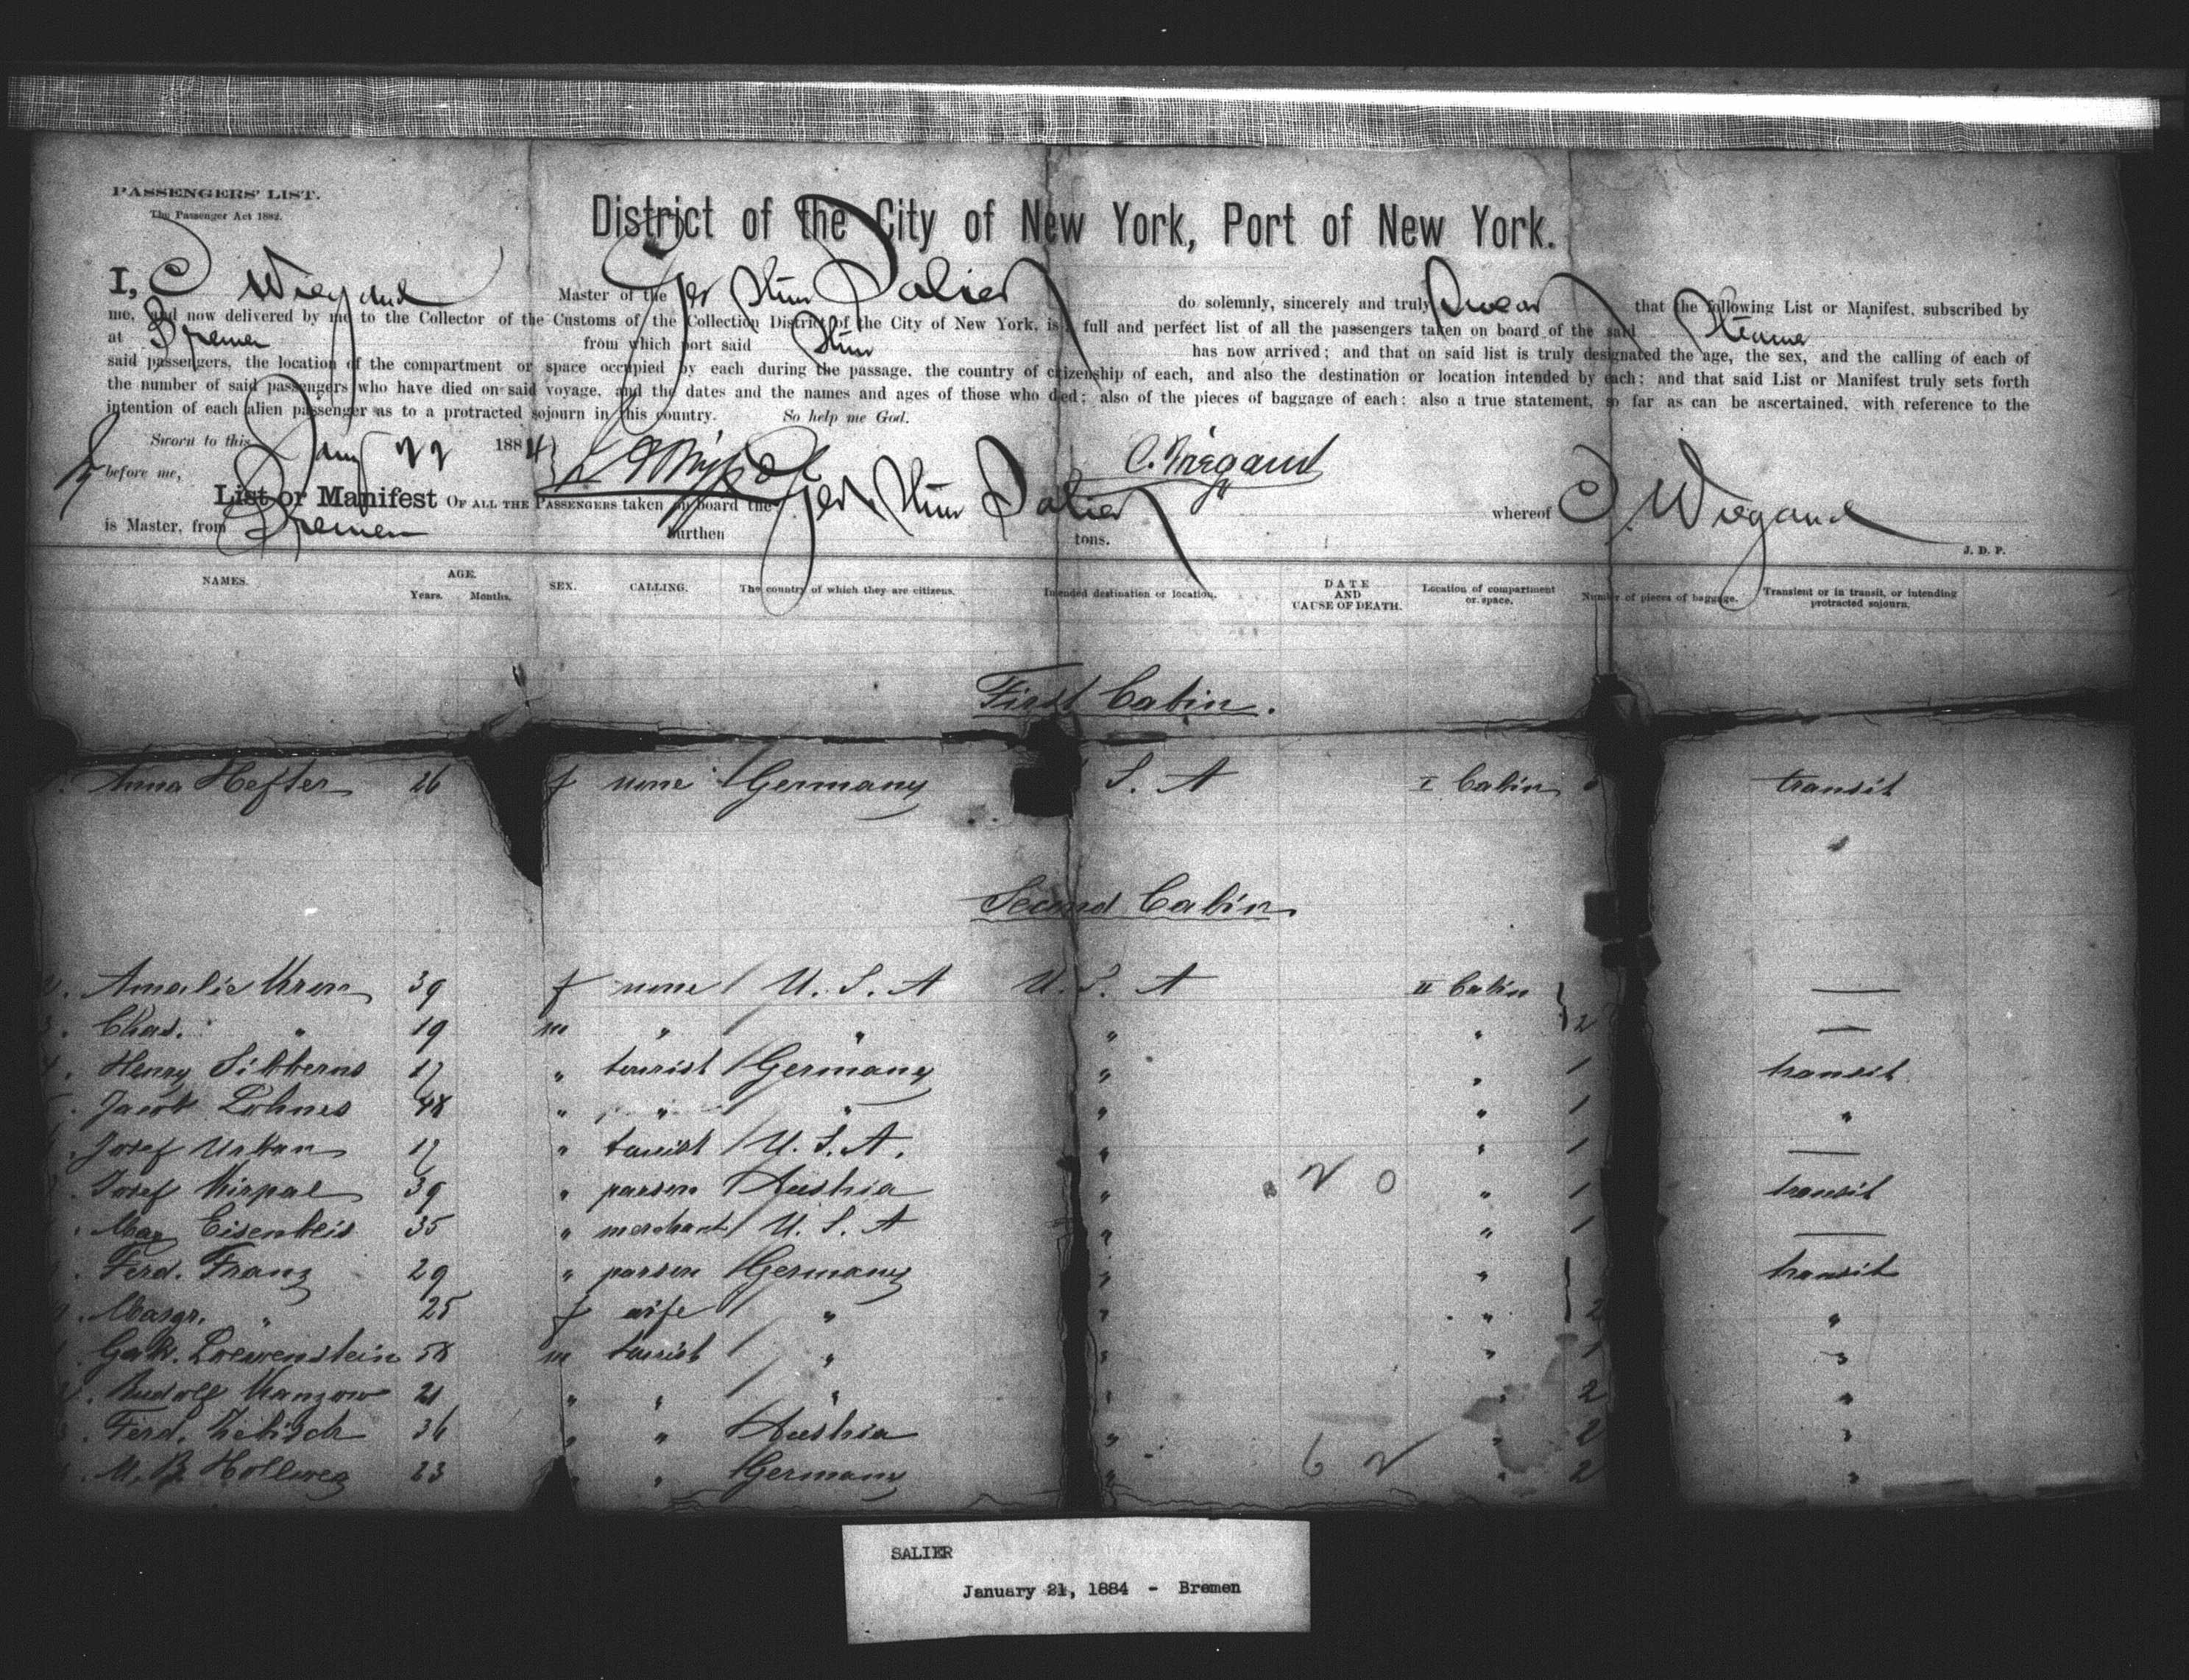 PASSENGERS' LIST.
The Passenger Act 1882.
District of the City of New York, Port of New York.
I, C Wiegand Master of the Ger Stmr Salier do solemnly, sincerely and truly swear that the following List or Manifest, subscribed by
me, and now delivered by me to the Collector of the Customs of the Collection District of the City of New York, is a full and perfect list of all the passengers taken on board of the said Steamer
at Bremen from which port said Stmr has now arrived; and that on said list is truly designated the age, the sex, and the calling of each of
said passengers, the location of the compartment or space occupied by each during the passage, the country of citizenship of each, and also the destination or location intended by each; and that said List or Manifest truly sets forth
the number of said passengers who have died on said voyage, and the dates and the names and ages of those who died; also of the pieces of baggage of each; also a true statement, so far as can be ascertained, with reference to the
intention of each alien passenger as to a protracted sojourn in this country. So help me God.
Sworn to this Jany 22 1884
before me, C. Wiegand
List or Manifest OF ALL THE PASSENGERS taken on board the Ger. Stmr Salier whereof C. Wiegand
is Master, from Bremen burthen tons.
J. D. P.
NAMES. AGE. Years. Months. SEX. CALLING. The country of which they are citizens. Intended destination or location. DATE AND CAUSE OF DEATH. Location of compartment or space. Number of pieces of baggage. Transient or in transit, or intending protracted sojourn.
First Cabin.
Anna Hefter 26 f none Germany S. A I Cabin transit
Second Cabin
2. Amalie 39 f none U. S. A U. S. A II Cabin —
3. Chas. " 19 m " " " " 2 —
4. Henry Sibberns 17 " tourist Germany " " 1 transit
5. Jacob Lohnes 48 " " " " " 1 "
Josef Urban 17 " tourist U. S. A. " " 1 —
Josef Kirpal 39 " parson Austria " N 0 " 1 transit
Max Eisenbeis 35 " merchant U. S. A " " 1 —
Ferd. Franz 29 " parson Germany " " transit
Margr. " 25 f wife " " " 2 "
Gottl. Loewenstein 58 m tourist " " " 1 "
Rudolf Kanzow 21 " " " " " 2 "
Ferd. 36 " " Austria " " 2 "
M. B. Hollweg 23 " " Germany " 6 N " 2 "
SALIER
January 21, 1884 - Bremen